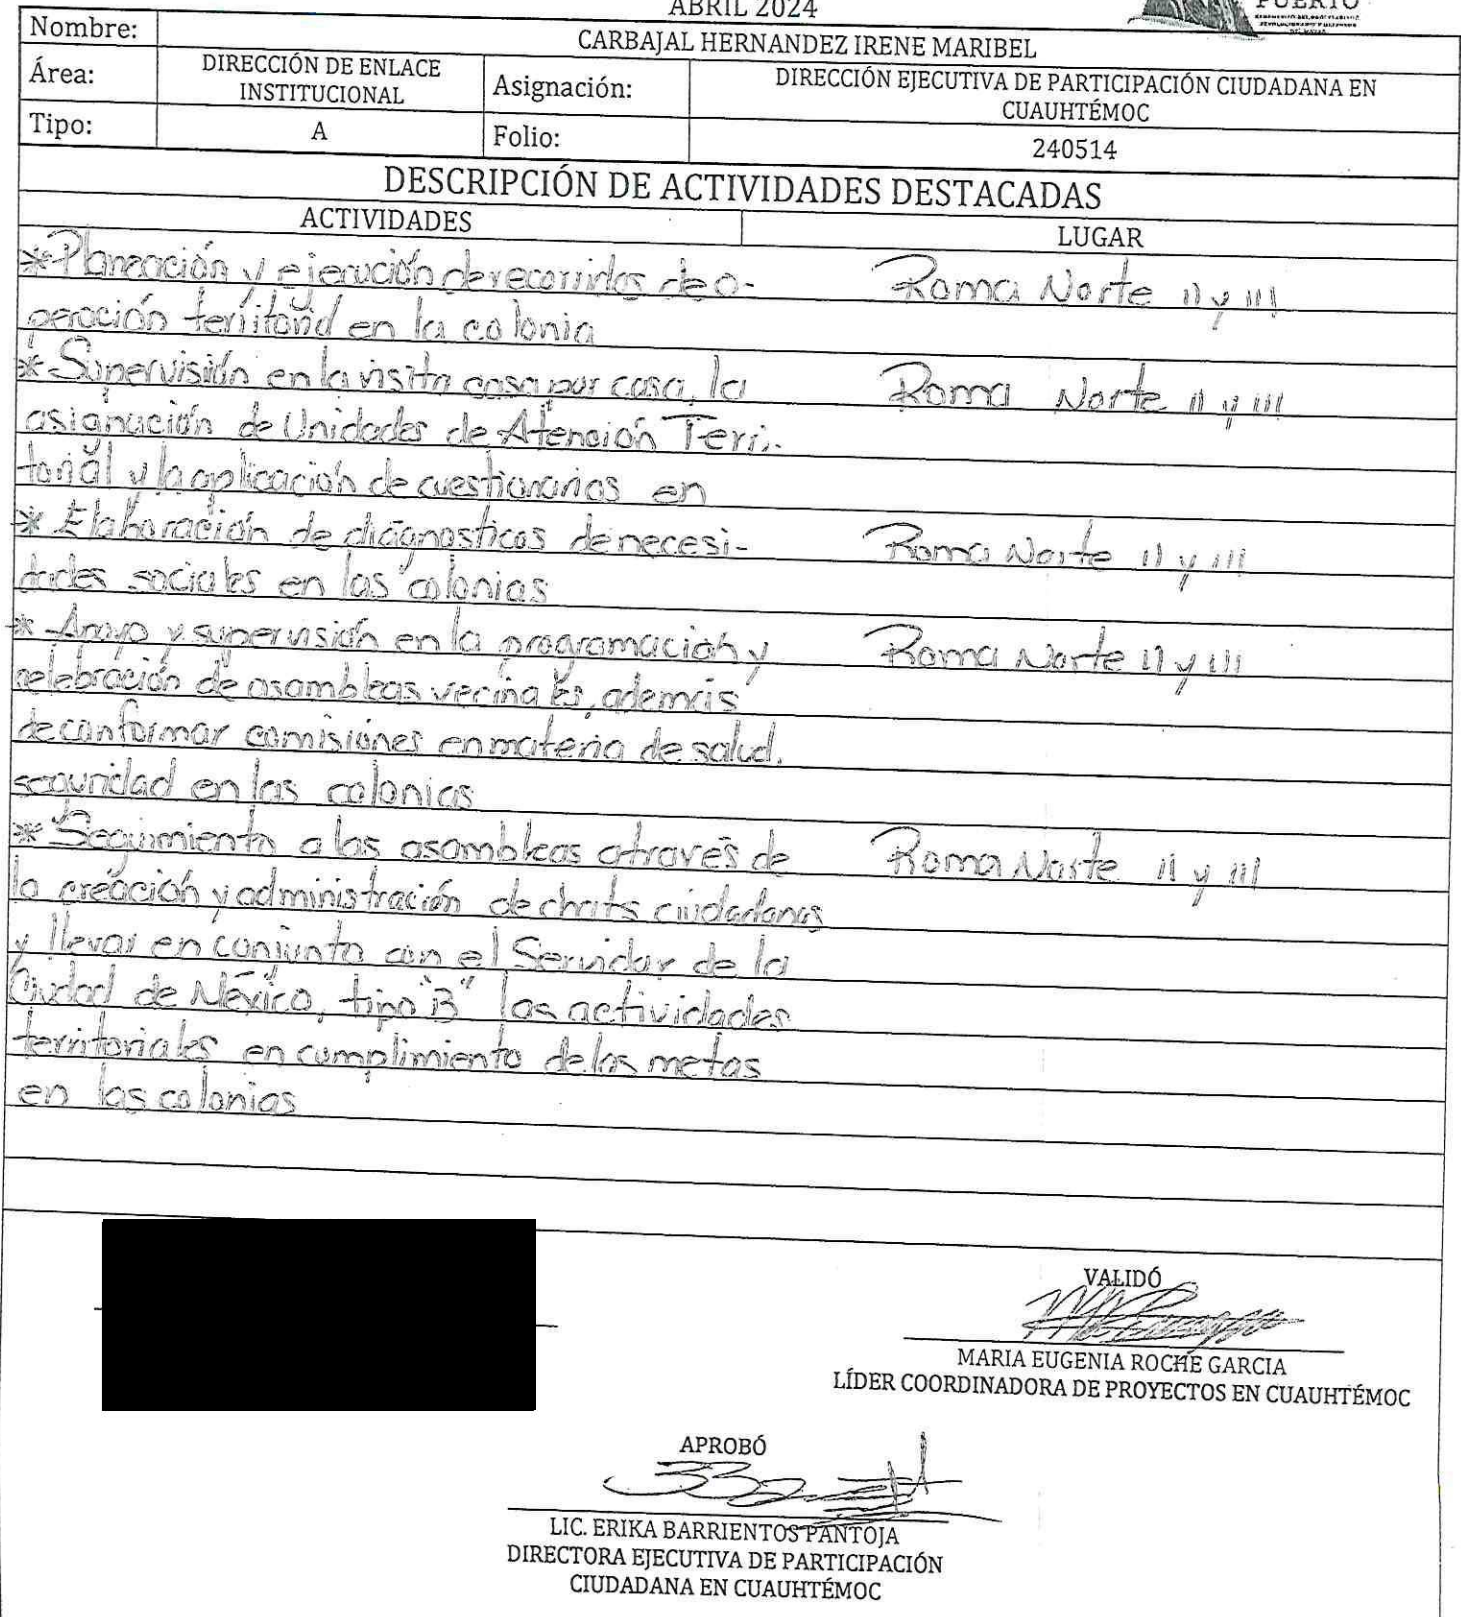 ABRIL 2024
PUERTO
Nombre: CARBAJAL HERNANDEZ IRENE MARIBEL
Área: DIRECCIÓN DE ENLACE INSTITUCIONAL Asignación: DIRECCIÓN EJECUTIVA DE PARTICIPACIÓN CIUDADANA EN CUAUHTÉMOC
Tipo: A Folio: 240514
DESCRIPCIÓN DE ACTIVIDADES DESTACADAS
ACTIVIDADES LUGAR
*Planeación y ejecución de recorridos de o- Roma Norte II y III
peración territorial en la colonia
* Supervisión en la visita casa por casa, la Roma Norte II y III
asignación de Unidades de Atención Terri-
torial y la aplicación de cuestionarios en
* Elaboración de diágnosticos de necesi- Roma Norte II y III
dades sociales en las colonias
* Apoyo y supervisión en la programación y Roma Norte II y III
celebración de asambleas vecinales, además
de conformar comisiones en materia de salud,
seguridad en las colonias
* Seguimiento a las asambleas através de Roma Norte II y III
la creación y administración de chats ciudadanos
y llevar en conjunto con el Servidor de la
Ciudad de México, tipo "B" las actividades
territoriales en cumplimiento de las metas
en las colonias
VALIDÓ
MARIA EUGENIA ROCHE GARCIA
LÍDER COORDINADORA DE PROYECTOS EN CUAUHTÉMOC
APROBÓ
LIC. ERIKA BARRIENTOS PANTOJA
DIRECTORA EJECUTIVA DE PARTICIPACIÓN
CIUDADANA EN CUAUHTÉMOC